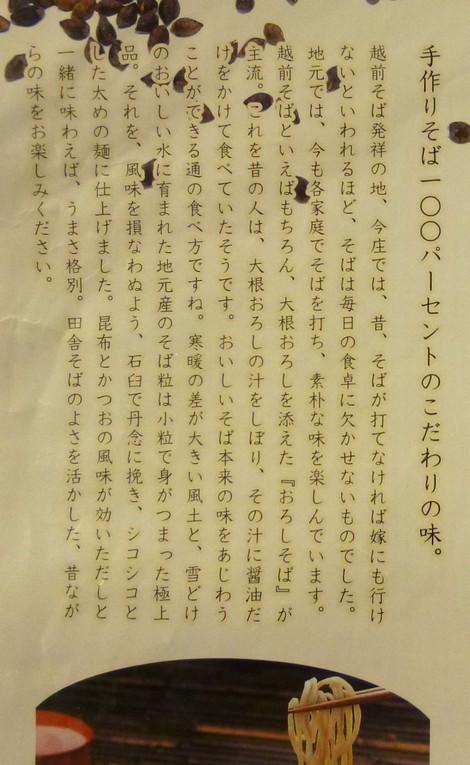 手作りそば一〇〇パーセントのこだわりの味。
越前そば発祥の地、今庄では、昔、そばが打てなければ嫁にも行け
ないといわれるほど、そばは毎日の食卓に欠かせないものでした。
地元では、今も各家庭でそばを打ち、素朴な味を楽しんでいます。
越前そばといえばもちろん、大根おろしを添えた『おろしそば』が
主流。これを昔の人は、大根おろしの汁をしぼり、その汁に醤油だ
けをかけて食べていたそうです。おいしいそば本来の味をあじわう
ことができる通の食べ方ですね。寒暖の差が大きい風土と、雪どけ
のおいしい水に育まれた地元産のそば粒は小粒で身がつまった極上
品。それを、風味を損なわぬよう、石臼で丹念に挽き、シコシコと
した太めの麺に仕上げました。昆布とかつおの風味が効いただしと
一緒に味わえば、うまさ格別。田舎そばのよさを活かした、昔なが
らの味をお楽しみください。